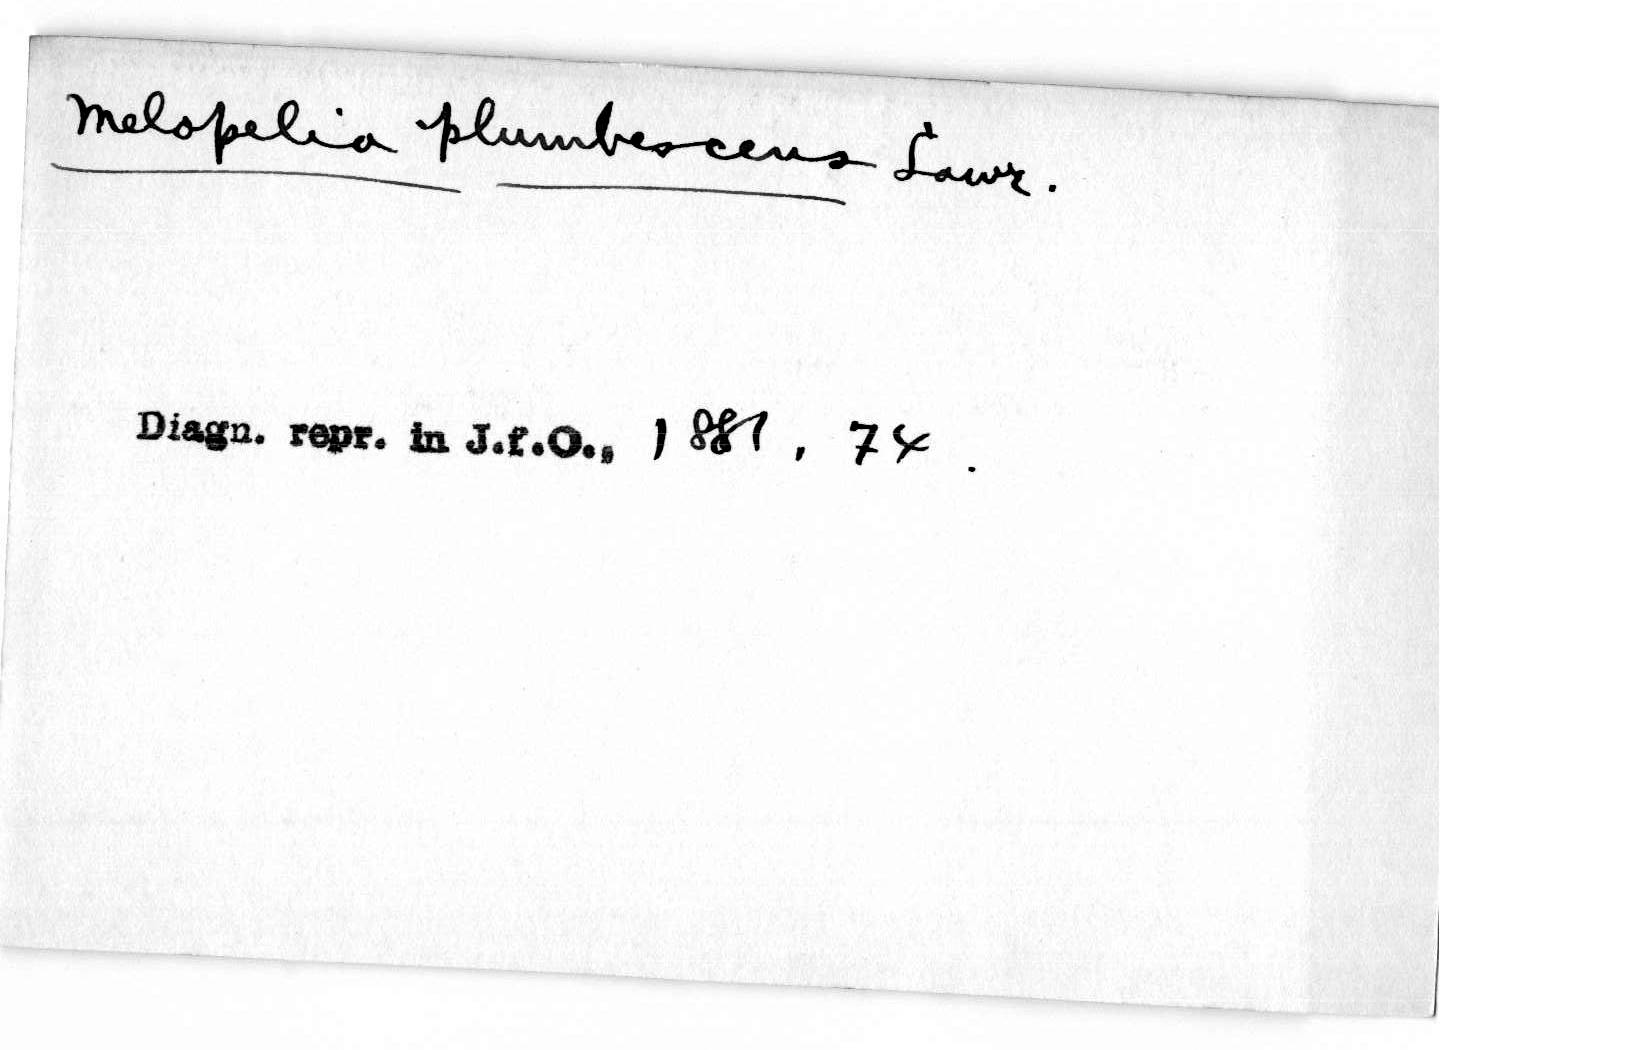 Melopelia plumbescens Lawr.
Diagn. repr. in J.f.O., 1881, 74.